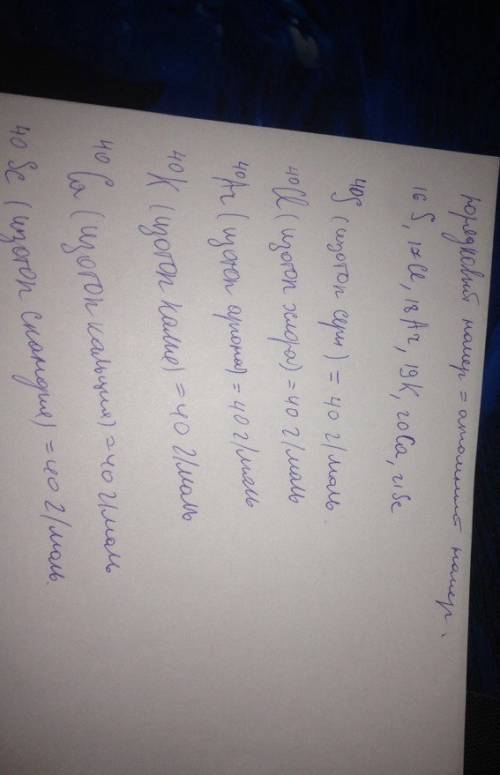 порядковый номер = атомный номер.
16 S, 17 Cl, 18 Ar, 19 K, 20 Ca, 21 Sc
40 S (изотоп серы) = 40 г/моль.
40 Cl (изотоп хлора) = 40 г/моль
40 Ar (изотоп аргона) = 40 г/моль
40 K (изотоп калия) = 40 г/моль
40 Ca (изотоп кальция) = 40 г/моль
40 Sc (изотоп скандия) = 40 г/моль.